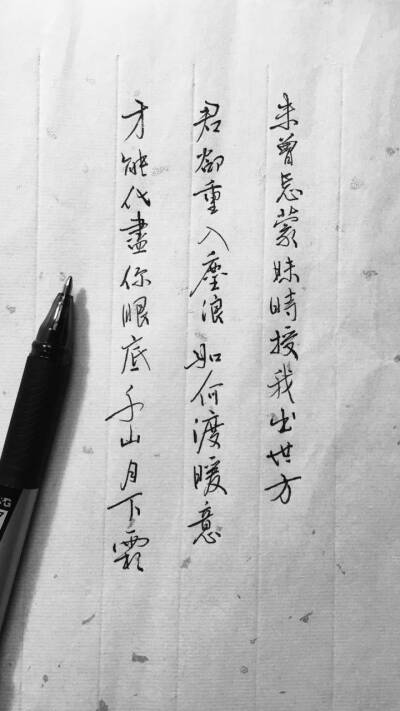 未曾忘蒙昧時授我出世方
君卻重入塵浪如何渡暖意
才能代盡你眼底千山月下霜